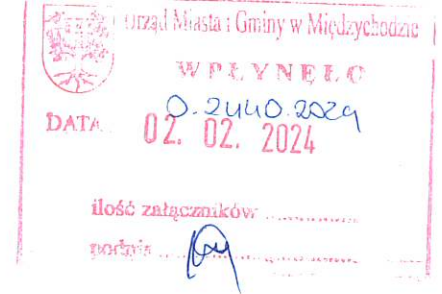 Urząd Miasta i Gminy w Międzychodzie
WPŁYNĘŁO
0.2440.2024
DATA 02. 02. 2024
ilość załączników ..................
podpis ..................